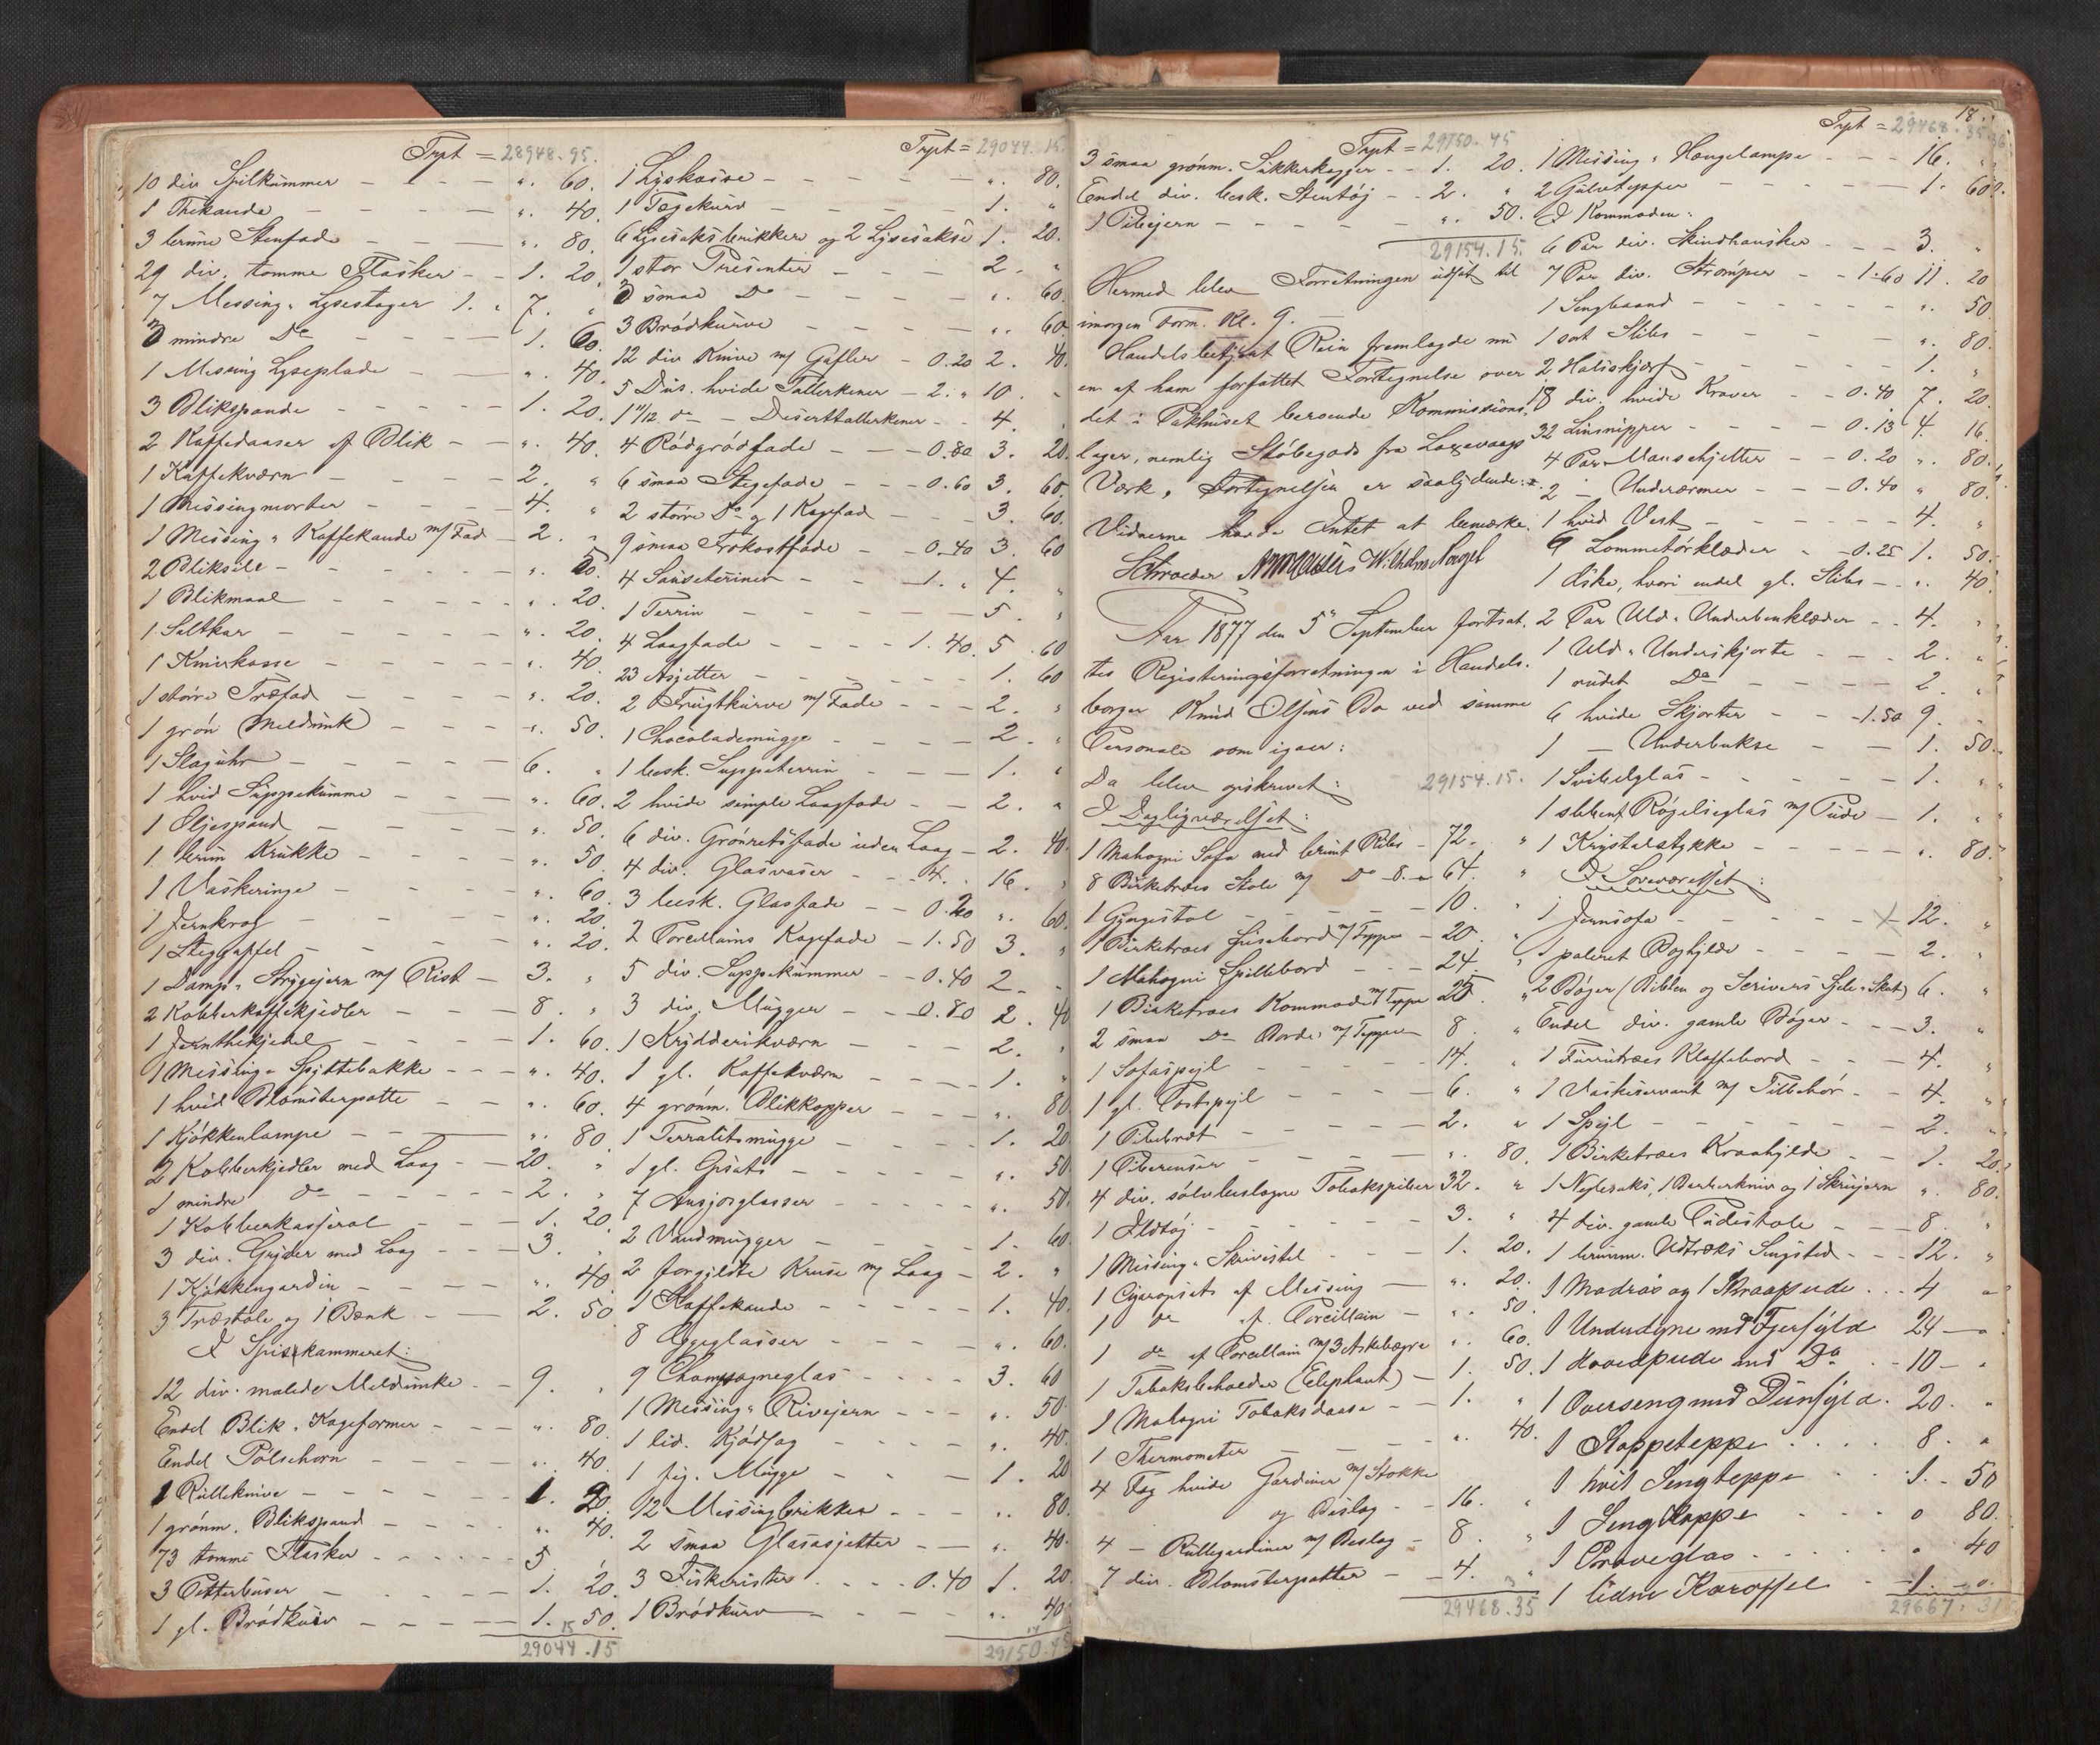 Trpt = 28948.95.
10 div Spilkummer - - - - ". 60.
1 Thekande - - - - ". 40.
3 brune Stenfade - - - ". 80.
29 div. tomme Flasker - - 1. 20.
7 Messing " Lysestager 1. " 7. "
3 mindre Do - - - 1. 60.
1 Messing Lyseplade - - - ". 40.
3 Blikspande - - - - 1. 20.
2 Kaffedaaser af Blik - - ". 40.
1 Kaffekværn - - - - 2. "
1 Messingmorter - - - - 4. "
1 Messing " Kaffekande m/ Fad - 2. "
2 Bliksile - - - - ". 20.
1 Blikmaal - - - - ". 20.
1 Saltkar - - - - ". 20.
1 Knivkasse - - - - ". 40.
1 større Træfad - - - ". 20.
1 grøn Meldunk - - - ". 50.
1 Slaguhr - - - - 6. "
1 hvid Suppekumme - - - ". 60.
1 Oljespand - - - ". 50.
1 brun Krukke - - - ". 50.
1 Vaskeringe - - - ". 60.
1 Jernkrog - - - ". 20.
1 Steggaffel - - - ". 20.
1 Damp " Strygejern m/ Rist - 3. "
2 Kobberkaffekjedler - - 8. "
1 Jernthekjedel - - - 1. 60.
1 Messing " Spyttebakke - - ". 40.
1 hvid Blomsterpotte - - ". 60.
1 Kjøkkenlampe - - - ". 80.
2 Kobberkjedler med Laag - - 20. "
1 mindre do - - - - 2. "
1 Kobberkasserol - - - 1. 20.
3 div. Gryder med Laag - - - 3. "
1 Kjøkkengardin - - - ". 40.
3 Træstole og 1 Bænk - - 2. 50.
I Spiskammeret:
12 div. malede Meldunke - - 9. "
Endel Blik " Kageformer - - ". 80.
Endel Pølsehorn - - - ". 40.
1 Rulleknive - - - - 1. 20.
1 grønm. Blikspand - - - ". 40.
73 tomme Flasker - - - - 5 "
3 Potterbøser - - - - 1. 20.
1 gl. Brødkurv - - - - 1. 50.
29044.15
Trpt = 29044.15.
1 Lyskasse - - - - - ". 80.
1 Tægekurv - - - - 1. "
6 Lysesaksbrikker og 2 Lysesakse 1. 20.
1 stor Presenter - - - 2. "
3 smaa Do - - - - ". 60.
3 Brødkurve - - - - ". 60
12 div Knive m/ Gafler - 0.20 2. 40.
5 Dus. hvide Tallerkener - 2. " 10. "
1 11/12 do - Deserttallerkener - - 4. "
4 Rødgrødfade - - - 0.80 3. 20.
6 smaa Stegefade - - - 0.60 3. 60.
2 større Do og 1 Kagefad - - - 3. 60.
9 smaa Frokostfade - - 0.40 3. 60
4 Sauseterriner - - 1. " 4. "
1 Terrin - - - - - 5. "
4 Laagfade - - - - 1.40. 5. 60
23 Asjetter - - - - - 1. 60
2 Frugtkurve m/ Fade - - - 2. "
1 Chocolademugge - - - - 2. "
1 besk. Suppeterrin - - - 1. "
2 hvide simple Laagfade - - 2. "
6 div. Grønretsfade uden Laag - 2. 40.
4 div. Glasvaser - - 4. " 16. "
3 besk. Glasfade - - 0.20 ". 60.
2 Porcellains Kagefade - 1.50 3. "
5 div. Suppekummer - - 0.40 2. "
3 div. Mugger - - 0.80 2. 40
1 Krydderikværn - - - 2. "
1 gl. Kaffekværn - - - 1. "
4 grønm. Blikkopper - - - ". 80
1 Terralitsmugge - - - 1. 20
1 gl. Opsats - - - - ". 50.
7 Ansjosglasser - - - - ". 50.
2 Vandmugger - - - - 1. 60.
2 forgyldte Kruse m/ Laag - 2. "
1 Kaffekande - - - - - 1. 40.
8 Æggeglasser - - - - ". 60.
9 Champagneglas - - - - 3. 60
1 Messing " Rivejern - - - ". 50.
1 lid. Kjødsag - - - - ". 40.
1 fig. Mugge - - - 1. 20
12 Messingbrikker - - - ". 80.
2 smaa Glasasjetter - - ". 40.
3 Fiskerister - - - 0.40 1. 20.
1 Brødkurv - - - - ". 40.
29150.45
Trpt = 29150.45
3 smaa grønm. Sukkerkopper - - 1. 20.
Endel div. besk. Stentøj - - 2. "
1 Pibejern - - - - ". 50.
29154.15.
Hermed blev Forretningen udsat til
imorgen Form. Kl. 9. -
Handelsbetjent Rein fremlagde nu
en af ham forfattet Fortegnelse over
det i Pakhuset beroende Kommissions-
lager, nemlig Støbegods fra Laxevaags
Værk, Fortegnelsen er saalydende: -
Vidnerne havde Intet at bemærke.
Schroeder Wilhelm Nagel
Aar 1877 den 5" September fortsat-
tes Registeringsforretningen i Handels-
borger Knud Olsens Bo ved samme
Personale som igaar:
Da blev opskrevet: 29154.15.
I Dagligværelset:
1 Mahogni Sofa med brunt Ribs - 72. "
8 Birketræes Stole m/ Do 8. " 64. "
1 Gyngestol - - - - 10. "
1 Birketræes Sofabord m/ Teppe - 20. "
1 Mahogni Spillebord - - - 24. "
1 Birketræes Kommode m/ Teppe 25. "
2 smaa Do Borde m/ Tepper 8. "
1 Sofaspejl - - - - 14. "
1 gl. Postspejl - - - - 6. "
1 Pibebræt - - - - 2. "
1 Piberenser - - - - ". 80.
4 div. sølvbeslagne Tobakspiber 32. "
1 Ildtøj - - - - - 3. "
1 Messing " Skrivestel - - - 1. 20.
1 Cigaropsats af Messing - ". 20.
1 do af Porcellain - ". 50.
1 do af Porcellain m/ 3 Askebægre ". 60.
1 Tobaksbeholder (Elephant) - 1. 50.
1 Mahogni Tobaksdaase - - 1. "
1 Thermometer - - - - ". 40.
4 Fag hvide Gardiner m/ Stokke
og Beslag - - 16. "
4 - Rullegardiner m/ Beslag - 8. "
7 div. Blomsterpotter - - 4. "
29468.35
18.
Trpt = 29468.35
1 Messing " Hængelampe - - - 16. "
2 Gulvtepper - - - - 1. 60.
I Kommoden:
6 Par div. Skindhansker - - - 3. "
7 Par div. Strømper - - 1.60 11. 20
1 Sengbaand - - - - - ". 50.
1 sort Slibs - - - - ". 80.
2 Halsskjærf - - - - - 1. "
18 div. hvide Kraver - - 0.40 7. 20.
32 Linsnipper - - - - 0.13 4. 16.
4 Par Manschjetter - - 0.20 ". 80.
2 - Underærmer - - - 0.40 " 80.
1 hvid Vest - - - - - 4. "
6 Lommetørklæder - - 0.25 1. 50.
1 Æske, hvori endel gl. Slibs - - ". 40.
2 Par Uld " Underbenklæder - - 4. "
1 Uld " Underskjorte - - - 2. "
1 rudet Do - - - - 2. "
6 hvide Skjorter - - 1.50 9. "
1 - Underbukse - - 1. 50.
1 Svibelglas - - - - - 1. "
1 slebent Røgelseglas m/ Pude - 1. "
1 Krystalstykke - - - - ". 80.
I Soveværelset:
1 Jernsofa - - - - - X 12. "
1 poleret Boghylde - - - - 2. "
2 Bøger (Biblen og Scrivers Sjele " Skat) 6. "
Endel div. gamle Bøger - - - 3. "
1 Furutræes Klaffebord - - - 4. "
1 Vaskeservant m/ Tilbehør - - 4. "
1 Spejl - - - - - - 2. "
1 Birketræes Kraahylde - - 1. 20.
1 Neglesaks, 1 Barberkniv og 1 Skruejern ". 80.
4 div. gamle Pudestole - - - 8. "
1 brunm. Udtræks Sengsted - - - 12. "
1 Madras og 1 Skraapude . . . 4 "
1 Underdyne med Fjerfyld 24 - "
1 Hovedpude med Do - - 10 - "
1 Overseng med Dunfyld . 20. "
1 Stoppeteppe . . . . 8. "
1 hvit Sengteppe . . 1. - 50
1 Sengkappe . . . . " 80.
1 Prøveglas . . . . . " 40
1 liden Karaffel - - 1. - "
29667.31